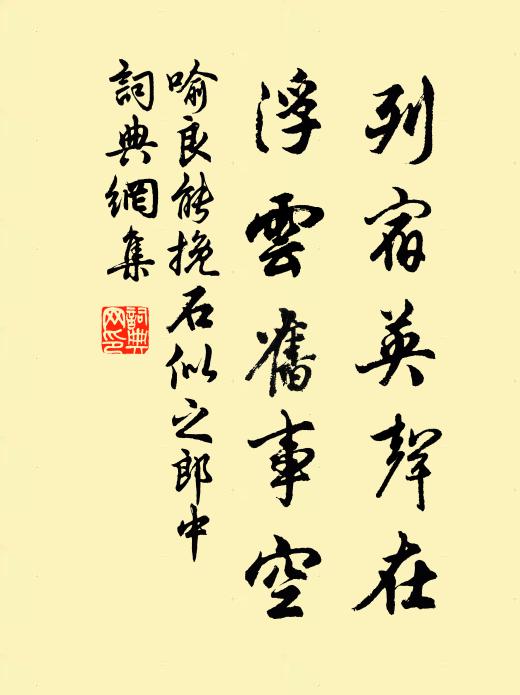 列宿英聲在
浮雲舊事空
喻良能挽石似之郎中
詞典網集
詞典网印